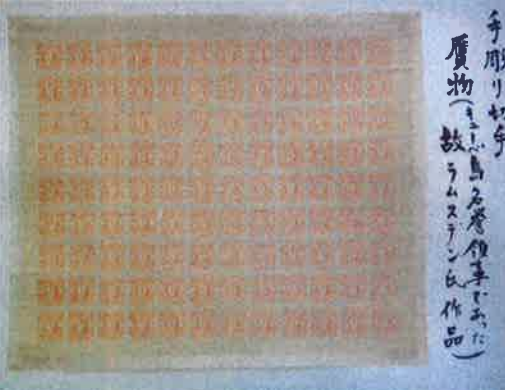 手彫り切手
贋物(キューバ島名誉領事であった
故ラムスデン氏作品)